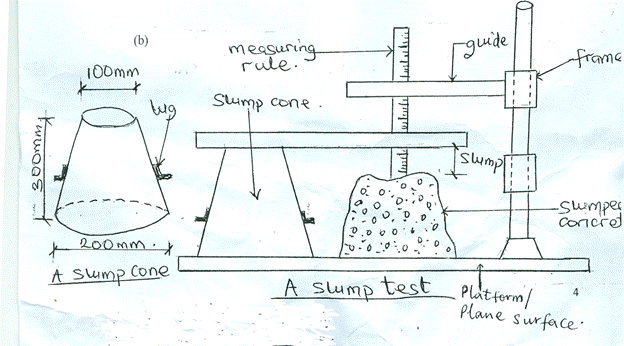 (b)
100mm
lug
300mm
200mm.
A slump cone
measuring
rule.
Slump cone.
guide
frame
slump
Slumped
concret
A slump test
Platform/
Plane surface.
4